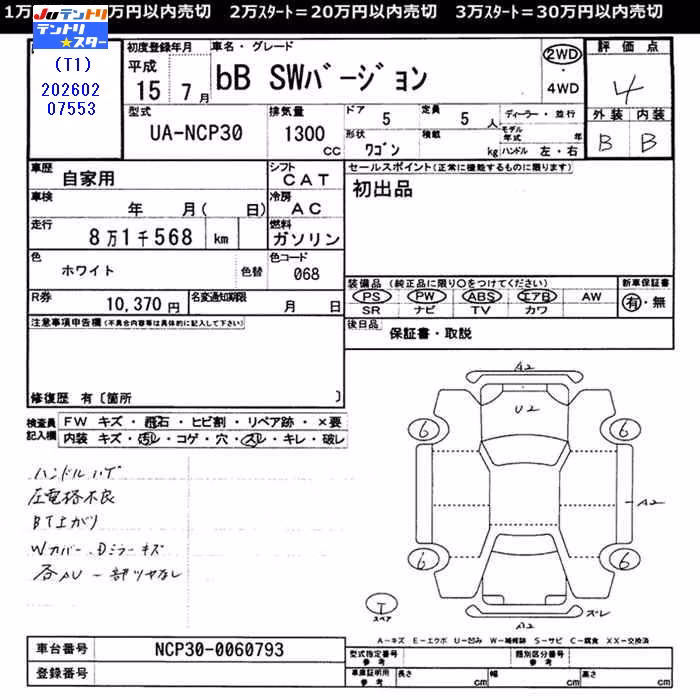 1万 万円以内売切 2万ｽﾀｰﾄ＝20万円以内売切 3万ｽﾀｰﾄ＝30万円以内売切
Juテントリ
テントリ★スター
(T1)
202602
07553
初度登録年月
平成
15 7月
車名・グレード
bB SWバージョン
2WD
4WD
評価点
4
外装 内装
B B
型式
UA-NCP30
排気量
1300
cc
ドア
5
定員
5
人
形状
ワゴン
積載
kg
ディーラー・並行
モデル年式 年
ハンドル 左・右
車歴
自家用
シフト
CAT
車検
年 月( 日)
冷房
AC
走行
8万1千568 km
燃料
ガソリン
色
ホワイト
色替
色コード
068
R券
10,370円
名変通知期限
月 日
セールスポイント(正常に機能するものに限ります)
初出品
装備品 (純正品に限り○をつけてください)
PS PW ABS エアB AW
SR ナビ TV カワ
新車保証書
有・無
後日品
保証書・取説
注意事項申告欄(不具合内容等は具体的に記入して下さい)
修復歴 有〔箇所 〕
検査員記入欄
FW キズ・飛石・ヒビ割・リペア跡・×要
内装 キズ・汚レ・コゲ・穴・スレ・キレ・破レ
ハンドルハゲ
圧電格不良
BT上がり
Wカバー、Dミラーキズ
各AU一部ツヤなし
A2
U2
6
6
A2
6
6
T
スペア
スレ
A2
A－キズ E－エクボ U－凹み W－補修跡 S－サビ C－腐食 XX－交換済
車台番号
NCP30-0060793
登録番号
型式指定番号
参考
類別区分番号
参考
車庫証明用
参考
長さ
cm
幅
cm
高さ
cm